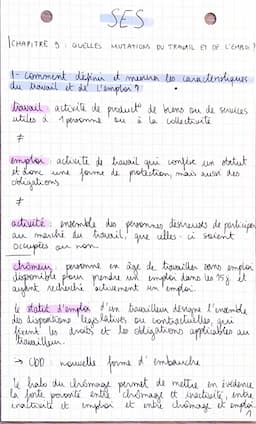 SES
CHAPITRE 9 : QUELLES MUTATIONS DU TRAVAIL ET DE L'EMPLOI ?
1- Comment définir et mesurer les caractéristiques
du travail et de l'emploi ?
travail : activité de product° de biens ou de services
utiles à 1 personne ou à la collectivité
≠
emploi : activité de travail qui confère un statut
et donc une forme de protection, mais aussi des
obligations
≠
activité : ensemble des personnes désireuses de participer
au marché du travail, que celles-ci soient
occupées ou non
chômeur : personne en âge de travailler sans emploi
disponible pour prendre un emploi dans les 15 j. et
ayant recherché activement un emploi.
le statut d'emploi d'un travailleur désigne l'ensemble
des dispositions législatives ou contractuelles, qui
fixent les droits et les obligations applicables au
travailleur.
→ CDD : nouvelle forme d'embauche
le halo du chômage permet de mettre en évidence
la forte porosité entre chômage et inactivité, entre
inactivité et emploi et entre chômage et emploi